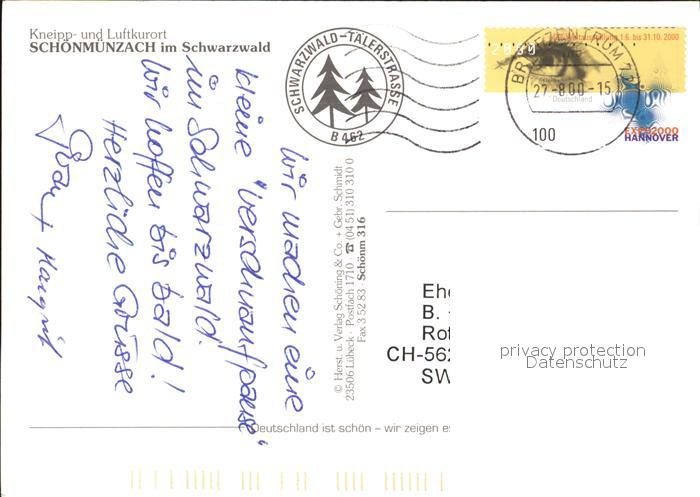 Kneipp- und Luftkurort
SCHÖNMÜNZACH im Schwarzwald
wir machen eine
kleine "Verschnaufpause"
im Schwarzwald.
Wir hoffen bis bald!
Herzliche Grüsse
+ Margrit
SCHWARZWALD-TÄLERSTRASSE
B 462
1.6. bis 31.10. 2000
27.-8.00-15
Deutschland
100
EXPO2000
HANNOVER
© Herst. u. Verlag Schöning & Co. + Gebr. Schmidt
23506 Lübeck · Postfach 1710 · ☎ (04 51) 310 310 0
Fax 3 52 83 · Schönm 316
Ehe
B.
Rot
CH-562
SW
privacy protection
Datenschutz
Deutschland ist schön – wir zeigen es